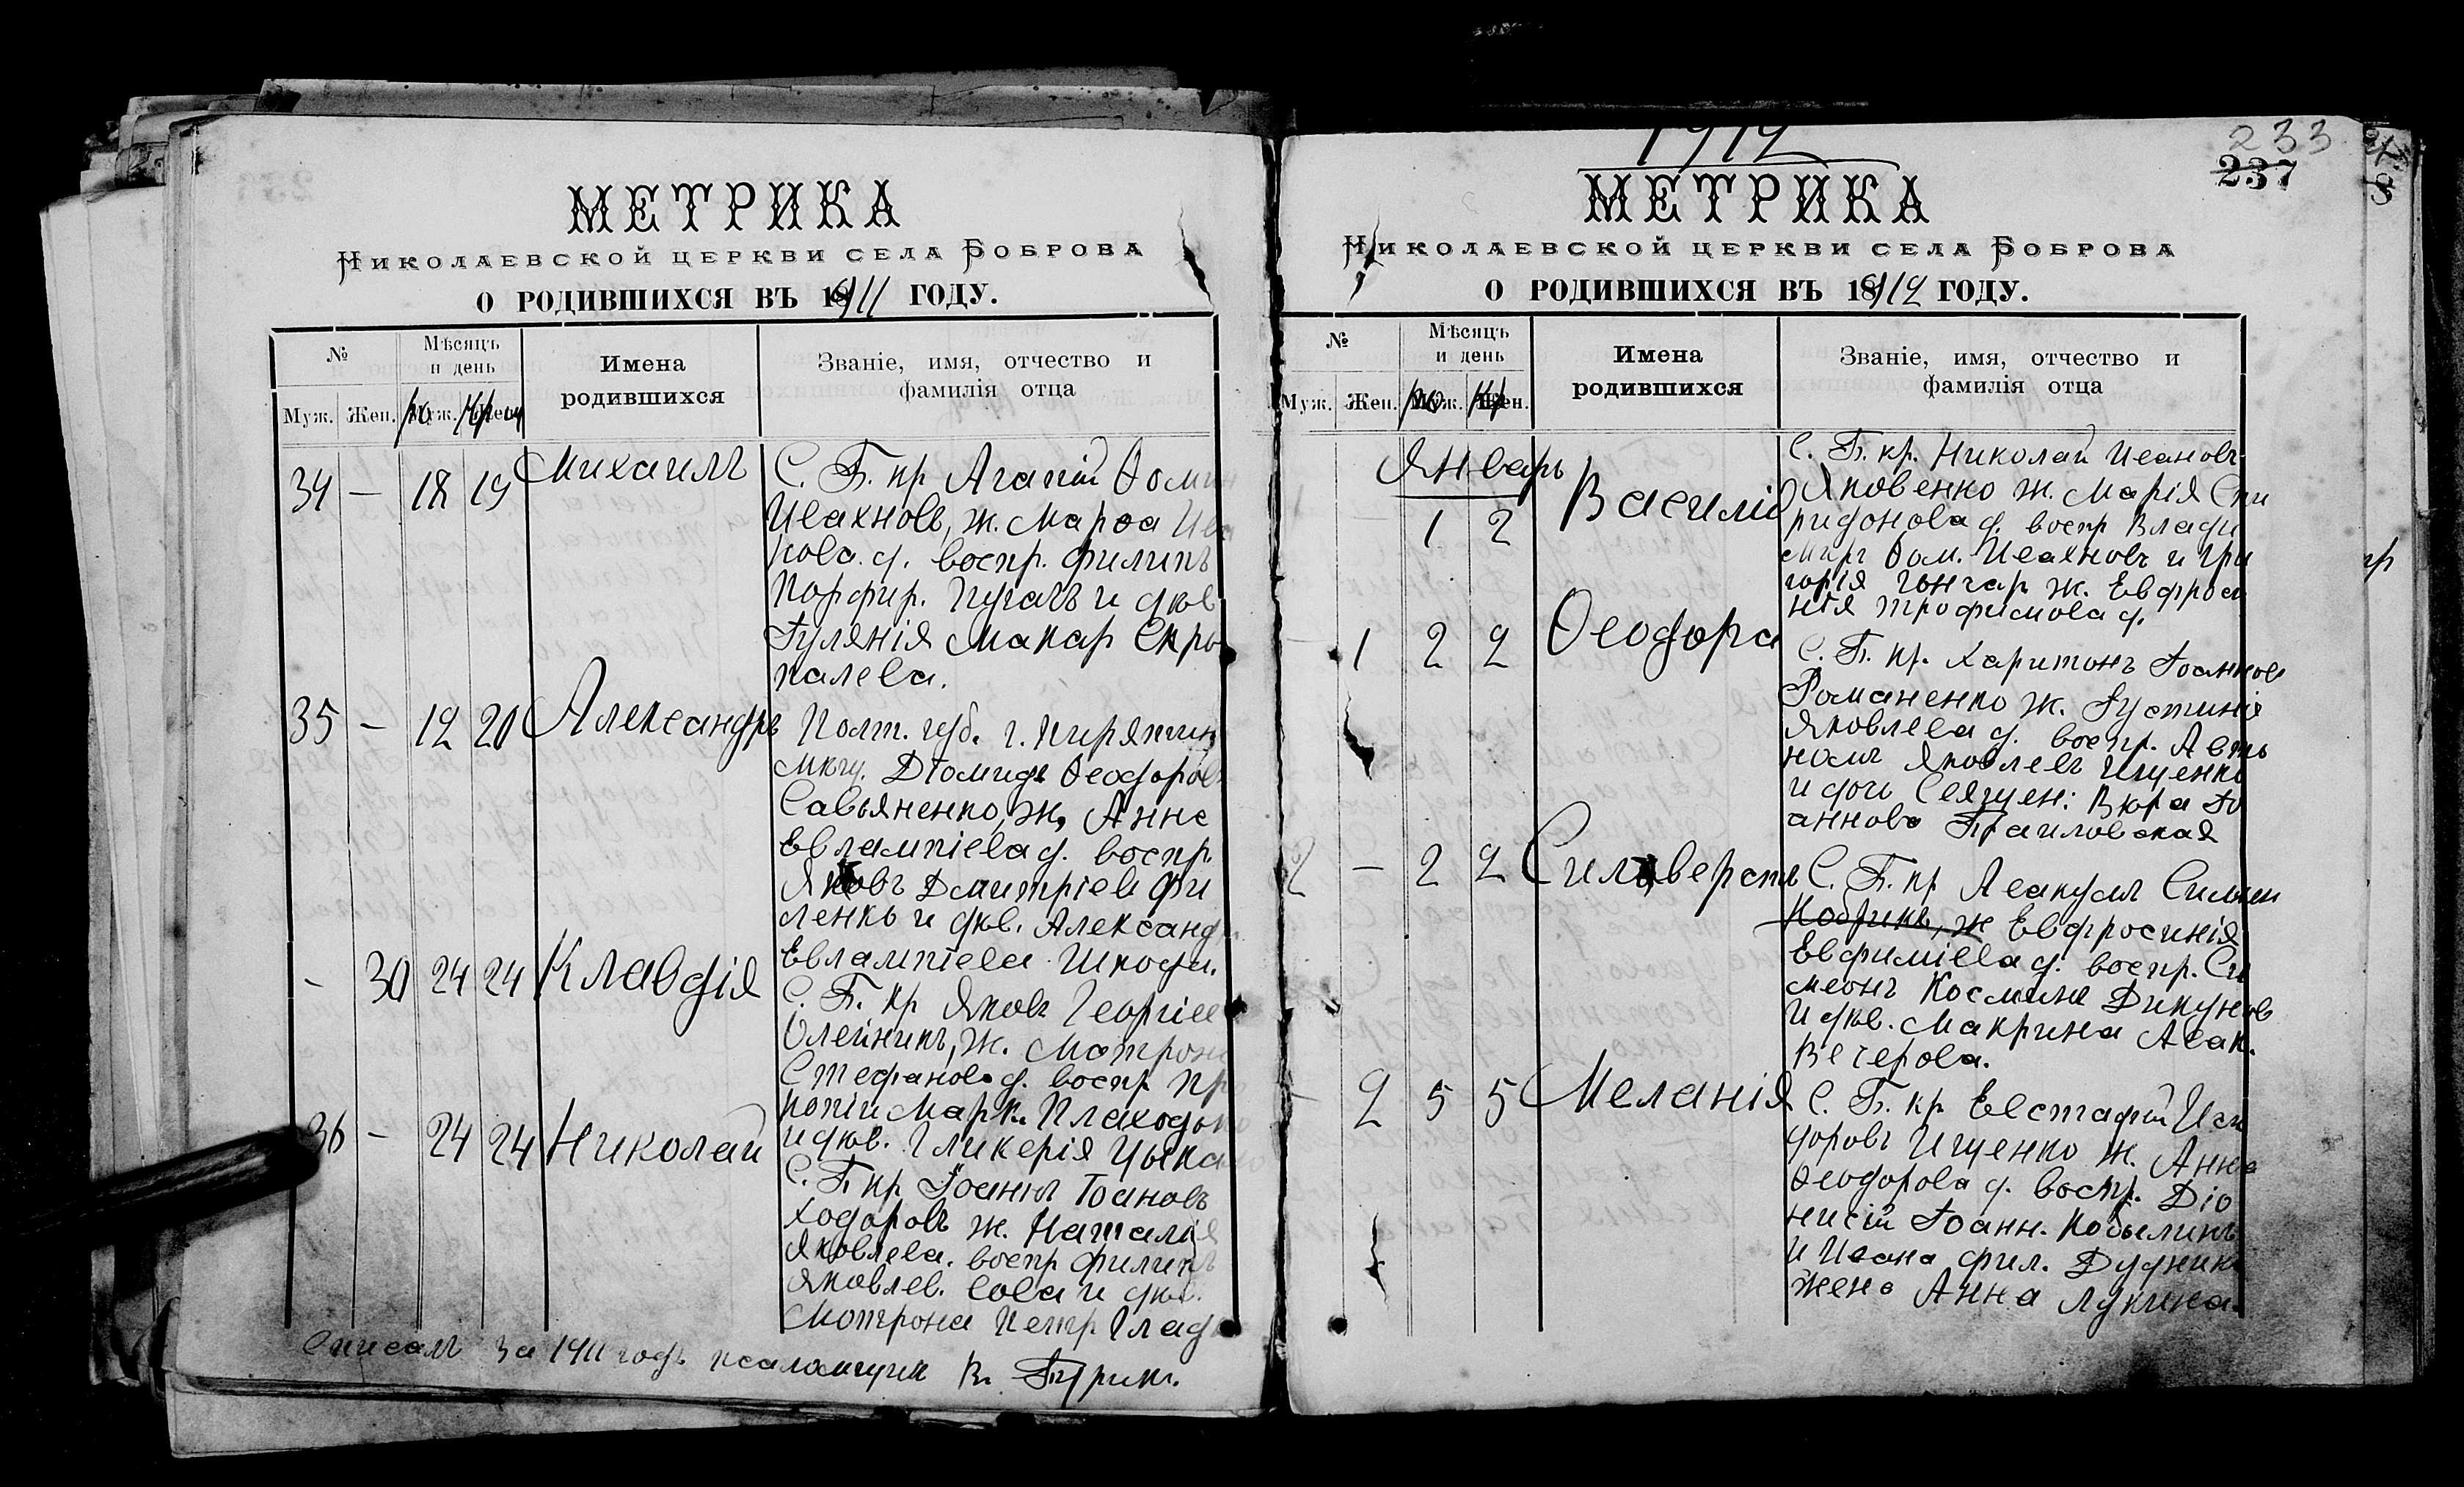 МЕТРИКА
Николаевской церкви села Боброва
О РОДИВШИХСЯ ВЪ 1911 ГОДУ.
№
Мѣсяцъ и день
Имена родившихся
Званіе, имя, отчество и фамилія отца
Муж. Жен. Муж. Жен.
34 — 18 19 Михаилъ
С. Б. кр Агапій Ѳомин
Ивахновъ, ж. Марѳа
кова. д. воспр. Филипъ
Порфир. Пугачъ и дѣв
Іулянія Макар Скро
палева.
35 — 12 20 Александръ
Полт. губ. г. Пирятин
мѣщ. Дюмидъ Ѳеодоров
Савьяненко, ж. Анна
Евлампіева д. воспр
Яковъ Дмитріев Фи
ленко и дѣв. Александ
Евлампіева Шкода.
- 30 24 24 Клавдія
С. Б. кр Яковъ Георгіев
Олейникъ, ж. Матрона
Стефанова д. воспр Пр
копій Марк. Плаходько
и дѣв. Гликерія
36 — 24 24 Николай
С. Б кр Іоаннъ Іоановъ
Ходоровъ ж. Наталія
Яковлева. воспр Филипъ
Яковлев. Сова и дѣв.
Мотрона Петр Глад
Списалъ за 1911 годъ псаломщик В.
1912
233
237
МЕТРИКА
Николаевской церкви села Боброва
О РОДИВШИХСЯ ВЪ 1912 ГОДУ.
№
Мѣсяцъ и день
Имена родившихся
Званіе, имя, отчество и фамилія отца
Муж. Жен. Муж. Жен.
Январь
- 1 2 Василій
С. Б. кр. Николай Ивановъ
Яковенко ж. Марія Спи
ридонова д. воспр Влади
миръ Ѳом. Ивахновъ и Гри
горія Гончар ж. Евфроси
нія Трофимова д.
1 2 2 Ѳеодора
С. Б. кр. Харитонъ Іоаннов
Романенко ж. Іустинія
Яковлева д. воспр. Авто
номъ Яковлевъ Ищенко
и дочь Священ: Вѣра Іо
аннова Браиловская
2 — 2 2 Сильверстъ
С. Б. кр Авакумъ Симеон
Кобрикъ, ж Евфросинія
Евфиміева д. воспр. Си
меонъ Косминъ Дикуновъ
и дѣв. Макрина Авак.
Вечерова.
- 2 5 5 Меланія
С. Б. кр Евстафій Иси
доровъ Ищенко ж. Анна
Ѳеодорова д. воспр. Діо
нисій Іоанн. Кобылинъ
и Ивана Фил. Дудник
жена Анна Лукина.